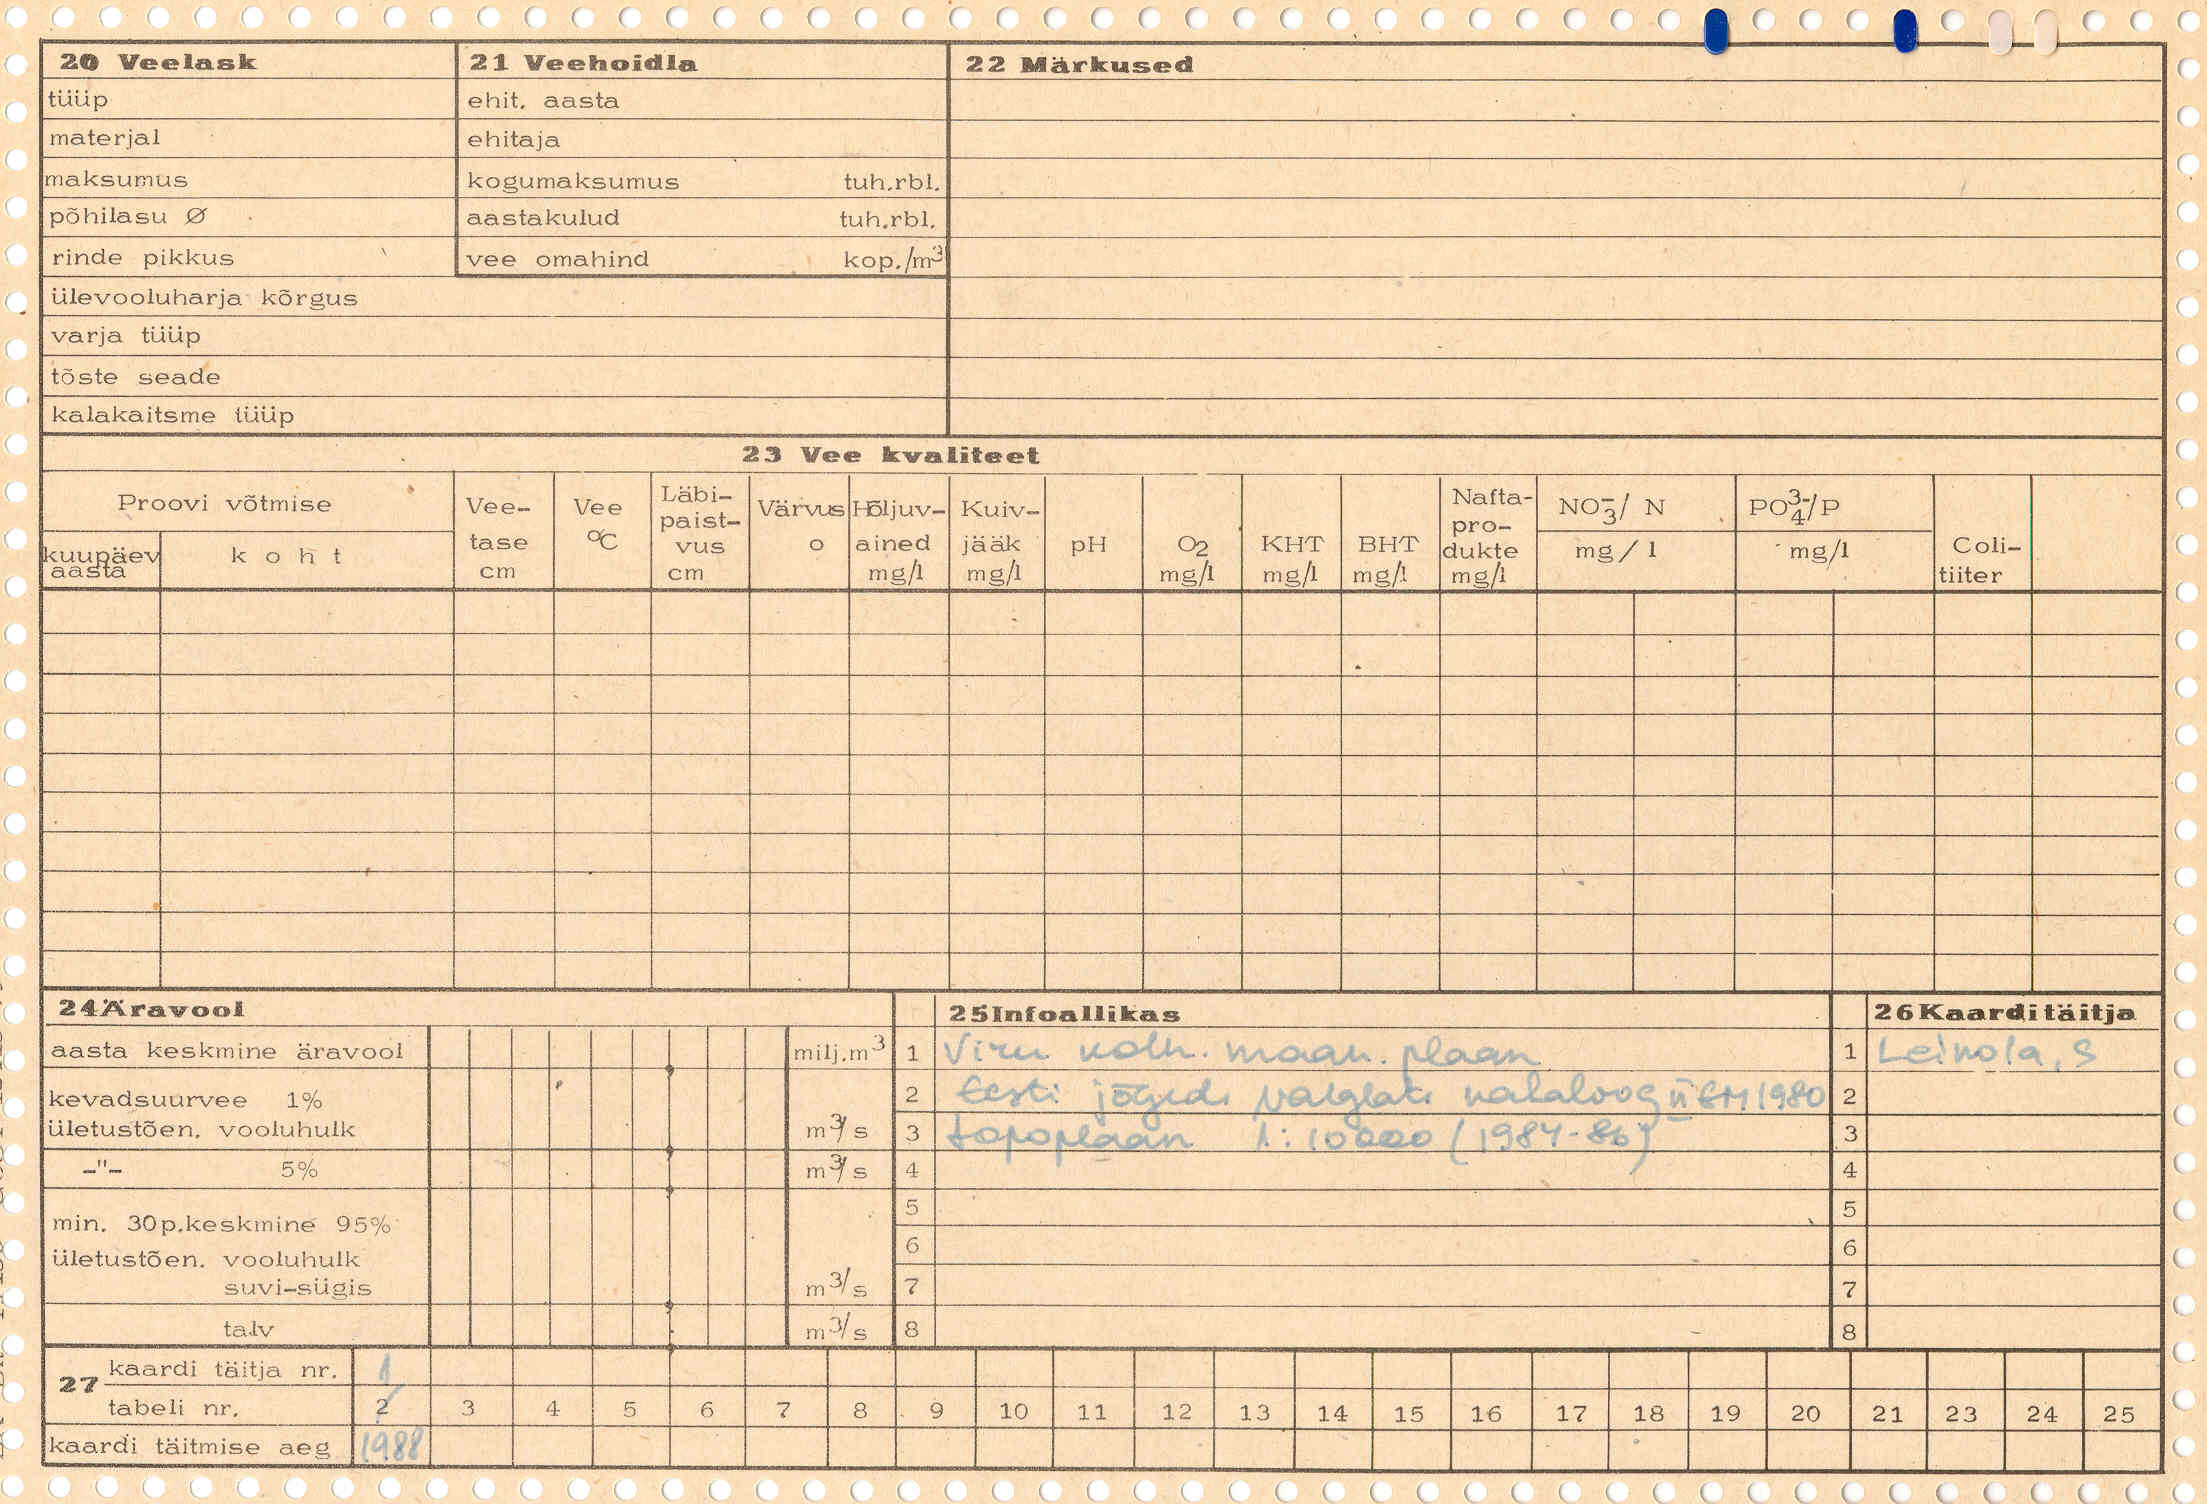 20 Veelask
tüüp
materjal
maksumus
põhilasu Ø
rinde pikkus
ülevooluharja kõrgus
varja tüüp
tõste seade
kalakaitsme tüüp
21 Veehoidla
ehit. aasta
ehitaja
kogumaksumus tuh.rbl.
aastakulud tuh.rbl.
vee omahind kop./m³
22 Märkused
23 Vee kvaliteet
Proovi võtmise
kuupäev aasta
koht
Vee-
tase
cm
Vee
°C
Läbi-
paist-
vus
cm
Värvus
o
Hõljuv-
ained
mg/l
Kuiv-
jääk
mg/l
pH
O₂
mg/l
KHT
mg/l
BHT
mg/l
Nafta-
pro-
dukte
mg/l
NO₃⁻/ N
mg/l
PO₄³⁻/P
mg/l
Coli-
tiiter
24 Äravool
aasta keskmine äravool milj.m³
kevadsuurvee 1%
ületustõen. vooluhulk m³/s
-"- 5% m³/s
min. 30p.keskmine 95%
ületustõen. vooluhulk
suvi-sügis m³/s
talv m³/s
25 Infoallikas
1 Viru kolh. maak. plaan
2 Eesti jõgede valglate kataloog II 1980
3 topoplaan 1:10000 (1984-86)
4
5
6
7
8
26 Kaarditäitja
1 Leinola, S
2
3
4
5
6
7
8
27 kaardi täitja nr. 1
tabeli nr. 2 3 4 5 6 7 8 9 10 11 12 13 14 15 16 17 18 19 20 21 23 24 25
kaardi täitmise aeg 1988